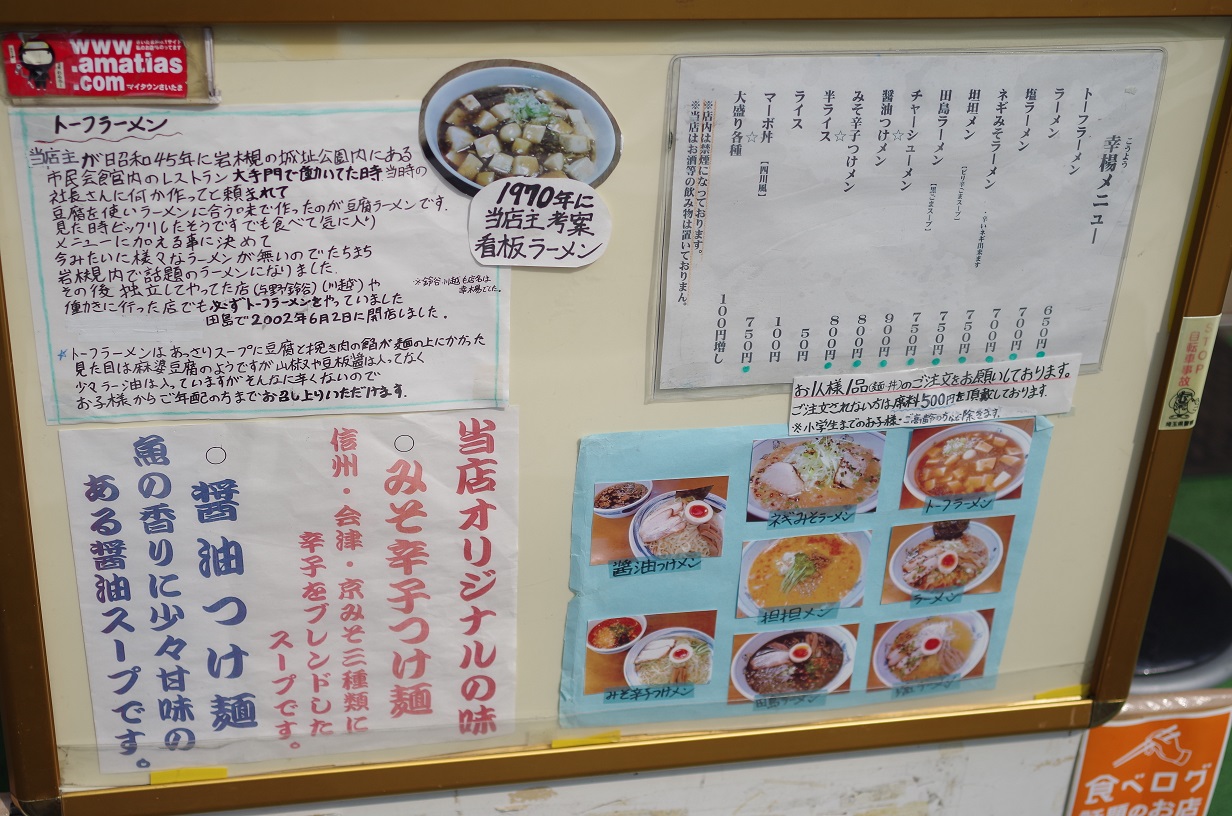 www
.amatias
.com
マイタウンさいたま
トーフラーメン
当店主が昭和45年に岩木槻の城址公園内にある
市民会館内のレストラン大手門で働いてた時当時の
社長さんに何か作ってと頼まれて
豆腐を使いラーメンに合う味で作ったのが豆腐ラーメンです.
見た時ビックリしたそうですでも食べて気に入り
メニューに加える事に決めて
今みたいに様々なラーメンが無いのでたちまち
岩槻内で話題のラーメンになりました.
その後独立してやってた店(与野/鈴谷)(川越)や
※鈴谷川越も店名は
幸楊でした。
働きに行った店でも必ずトーフラーメンをやっていました
田島で2002年6月2日に開店しました.
☆トーフラーメンはあっさりスープに豆腐と挽き肉の餡が麺の上にかかった
見た目は麻婆豆腐のようですが山椒や豆板醤は入ってなく
少々ラー油は入っていますがそんなに辛くないので
お子様からご年配の方までお召し上りいただけます.
1970年に
当店主考案
看板ラーメン
幸楊メニュー
こうよう
トーフラーメン 650円
ラーメン 700円
塩ラーメン 700円
ネギみそラーメン 750円
・辛いネギ出来ます
坦坦メン 750円
【ピリ辛ごまスープ】
田島ラーメン 750円
【黒ごまスープ】
チャーシューメン 900円
☆醤油つけメン 800円
みそ辛子つけメン 800円
☆半ライス 50円
ライス 100円
マーボ丼 【四川風】 750円
☆大盛り各種 100円増し
※店内は禁煙になっております。
※当店はお酒等の飲み物は置いておりません。
お1人様1品(麺・丼)のご注文をお願いしております。
ご注文されない方は席料500円を頂戴しております.
※小学生までのお子様・ご高齢の方など除きます.
当店オリジナルの味
○みそ辛子つけ麺
信州・会津・京みそ三種類に
辛子をブレンドした
スープです。
○醤油つけ麺
魚の香りに少々甘味の
ある醤油スープです。
ネギみそラーメン
トーフラーメン
醤油つけメン
担担メン
ラーメン
みそ辛子つけメン
田島ラーメン
STOP
自転車事故
埼玉県警察
食べログ
話題のお店